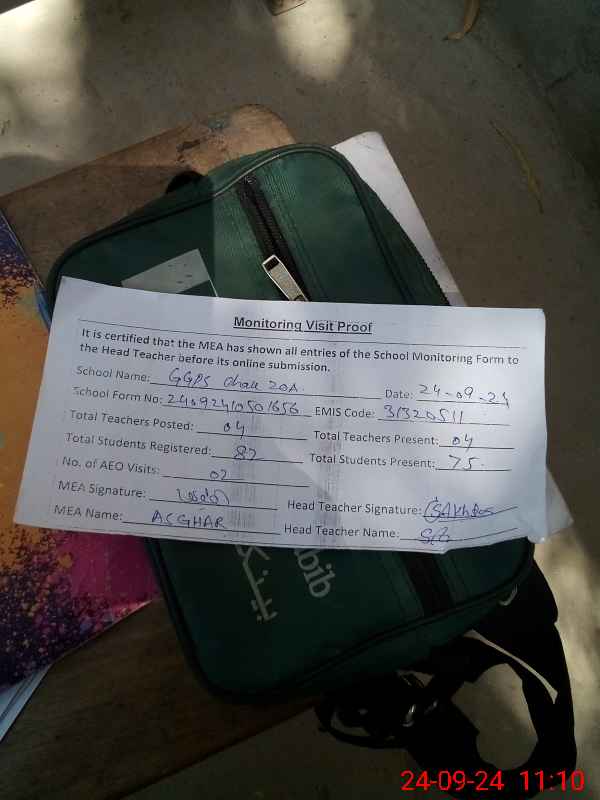 Monitoring Visit Proof
It is certified that the MEA has shown all entries of the School Monitoring Form to
the Head Teacher before its online submission.
School Name: GGPS Chak 20A. Date: 24-09-24
School Form No: 24092410501656 EMIS Code: 31320511
Total Teachers Posted: 04 Total Teachers Present: 04
Total Students Registered: 87 Total Students Present: 75.
No. of AEO Visits: 02
MEA Signature: Head Teacher Signature:
MEA Name: ASGHAR Head Teacher Name:
abib
بینک
24-09-24 11:10